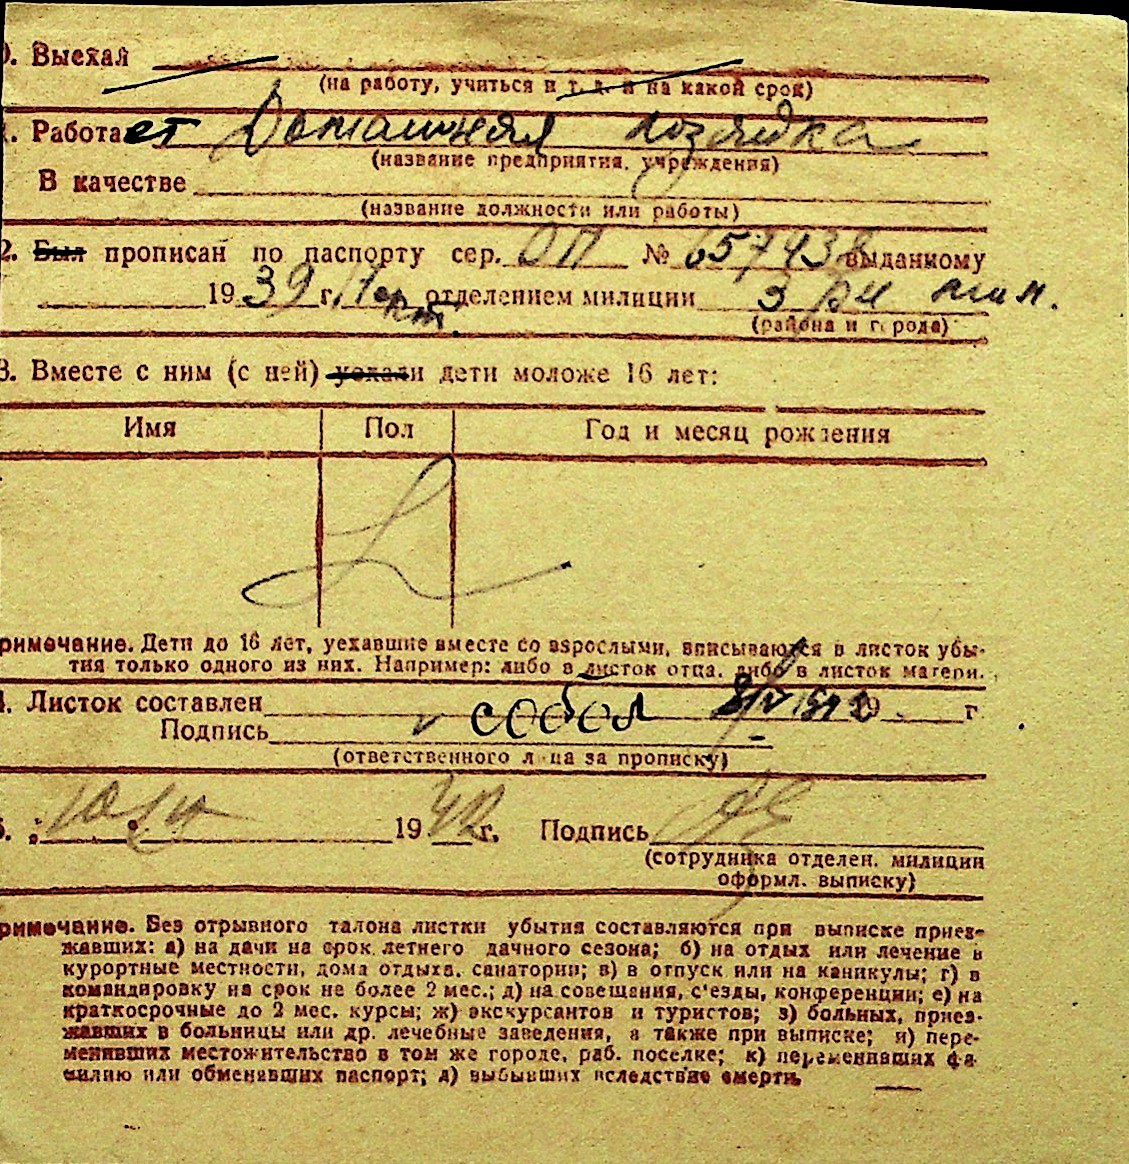 0. Выехал
(на работу, учиться и т. д. и на какой срок)
1. Работает Домашняя хозяйка
(название предприятия, учреждения)
В качестве
(название должности или работы)
2. Был прописан по паспорту сер. ОП № 657438 выданному
1939 г. отделением милиции 3
(района и города)
3. Вместе с ним (с ней) уехали дети моложе 16 лет:
Имя Пол Год и месяц рождения
римечание. Дети до 16 лет, уехавшие вместе со взрослыми, вписываются в листок убы-
тия только одного из них. Например: либо в листок отца, либо в листок матери.
4. Листок составлен 19 г
Подпись
(ответственного лица за прописку)
5. 1942 г. Подпись
(сотрудника отделен. милиции
оформл. выписку)
римечание. Без отрывного талона листки убытия составляются при выписке приез-
жавших: а) на дачи на срок летнего дачного сезона; б) на отдых или лечение в
курортные местности, дома отдыха, санатории; в) в отпуск или на каникулы; г) в
командировку на срок не более 2 мес.; д) на совещания, с'езды, конференции; е) на
краткосрочные до 2 мес. курсы; ж) экскурсантов и туристов; з) больных, приез-
жавших в больницы или др. лечебные заведения, а также при выписке; и) пере-
менивших местожительство в том же городе, раб. поселке; к) переменивших фа-
милию или обменявших паспорт; л) выбывших вследствие смерти.